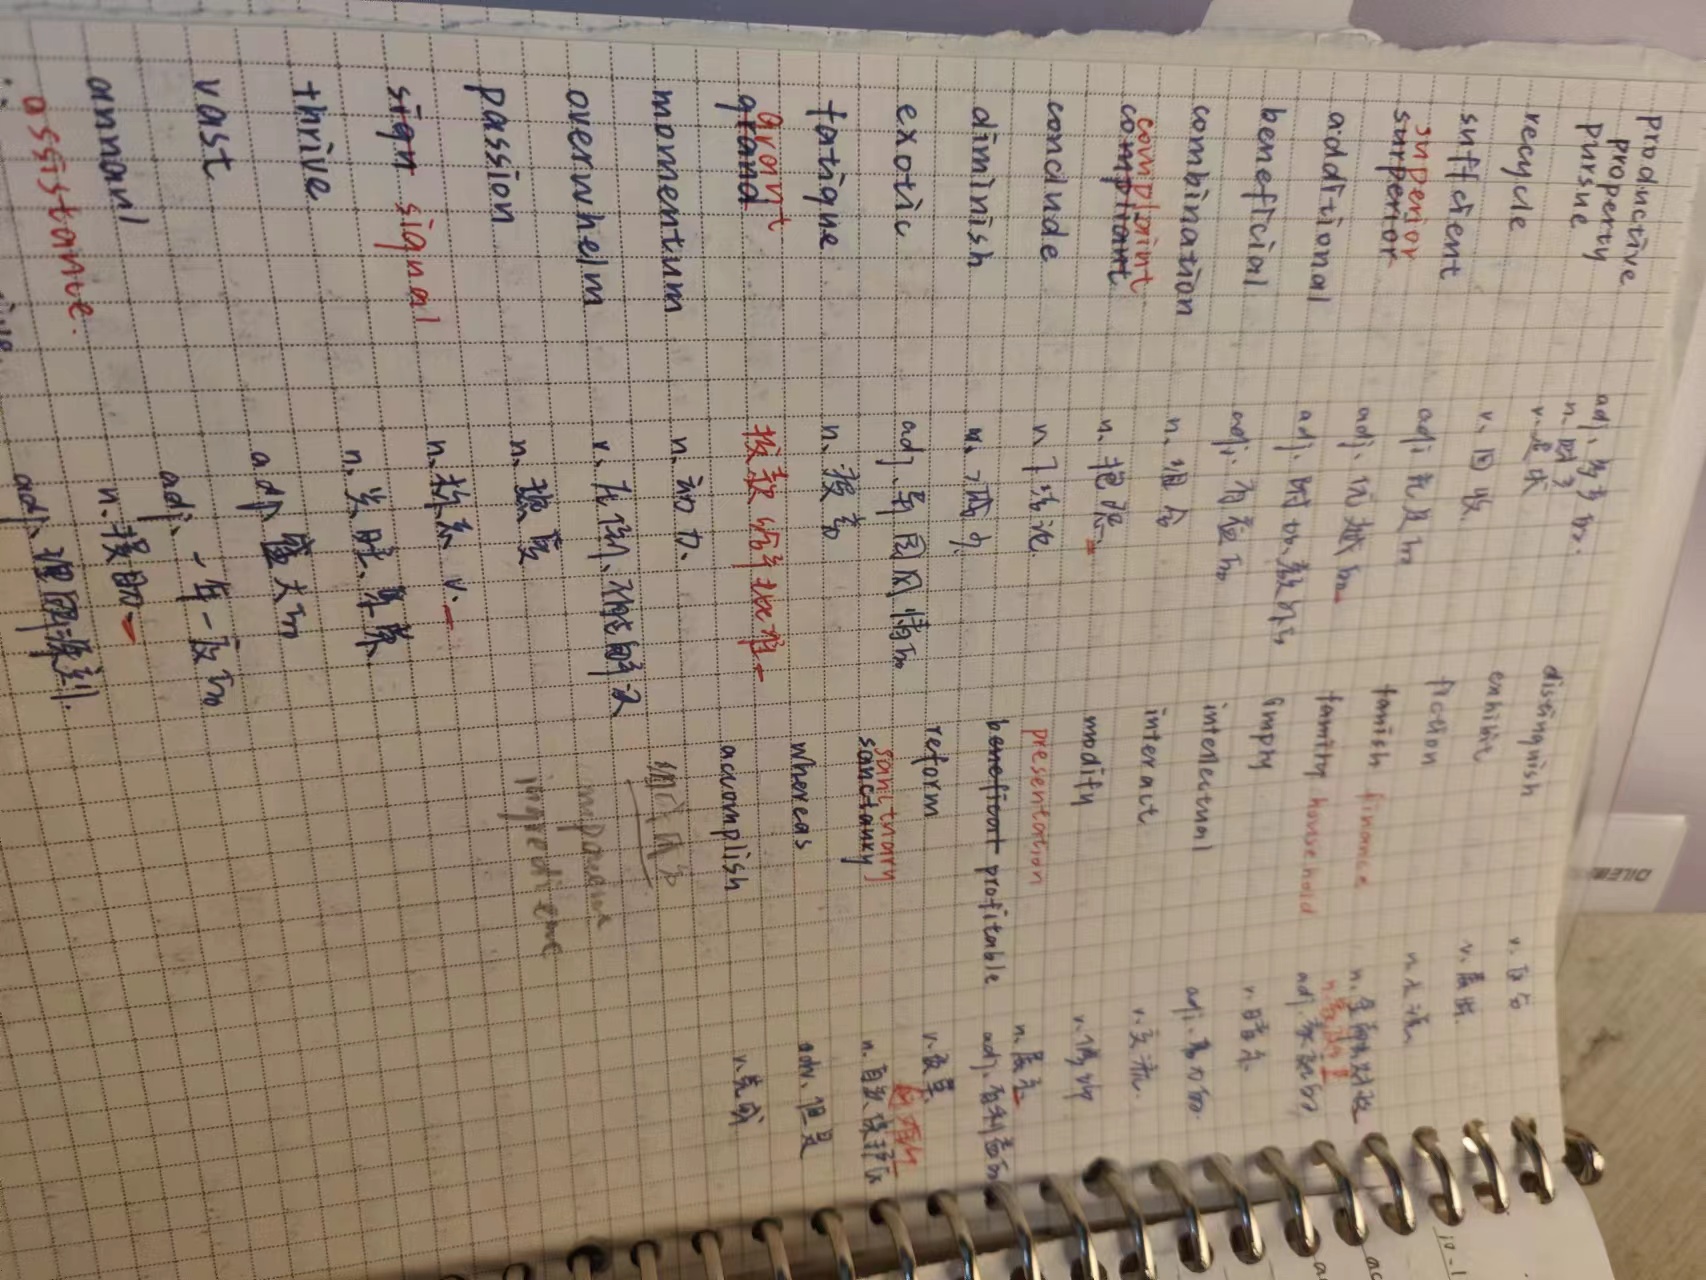 productive adj. 多产的.
property n. 财产
pursue v. 追求
recycle v. 回收
sufficient adj 充足的
superior
surperior adj. 优越的
additional adj. 附加的、额外的
beneficial adj. 有益的
combination n. 组合
complaint
compliant n. 抱怨
conclude n 总结
diminish v. 减少
exotic adj. 异国风情的
fatique n. 疲劳
grant
grand 拨款 给予, 授权
momentum n. 动力.
overwhelm v.
passion n. 热爱
sign signal n. 标志 v.
thrive n.
vast adj. 盛大的
annanl adj. 一年一度的
assistance. n. 援助
distinguish v.
exhibit v. 展出
fiction n.
famish finance n.
family household adj.
Empty v.
intellectual adj.
interact v. 交流.
modify v. 修改
presentation n. 展示
benefioot profitable adj. 有利益的
reform v. 改革
sanctuary
sanctanky n. 自然保护区
whereas adv. 但是
accomplish v. 完成
ingredient